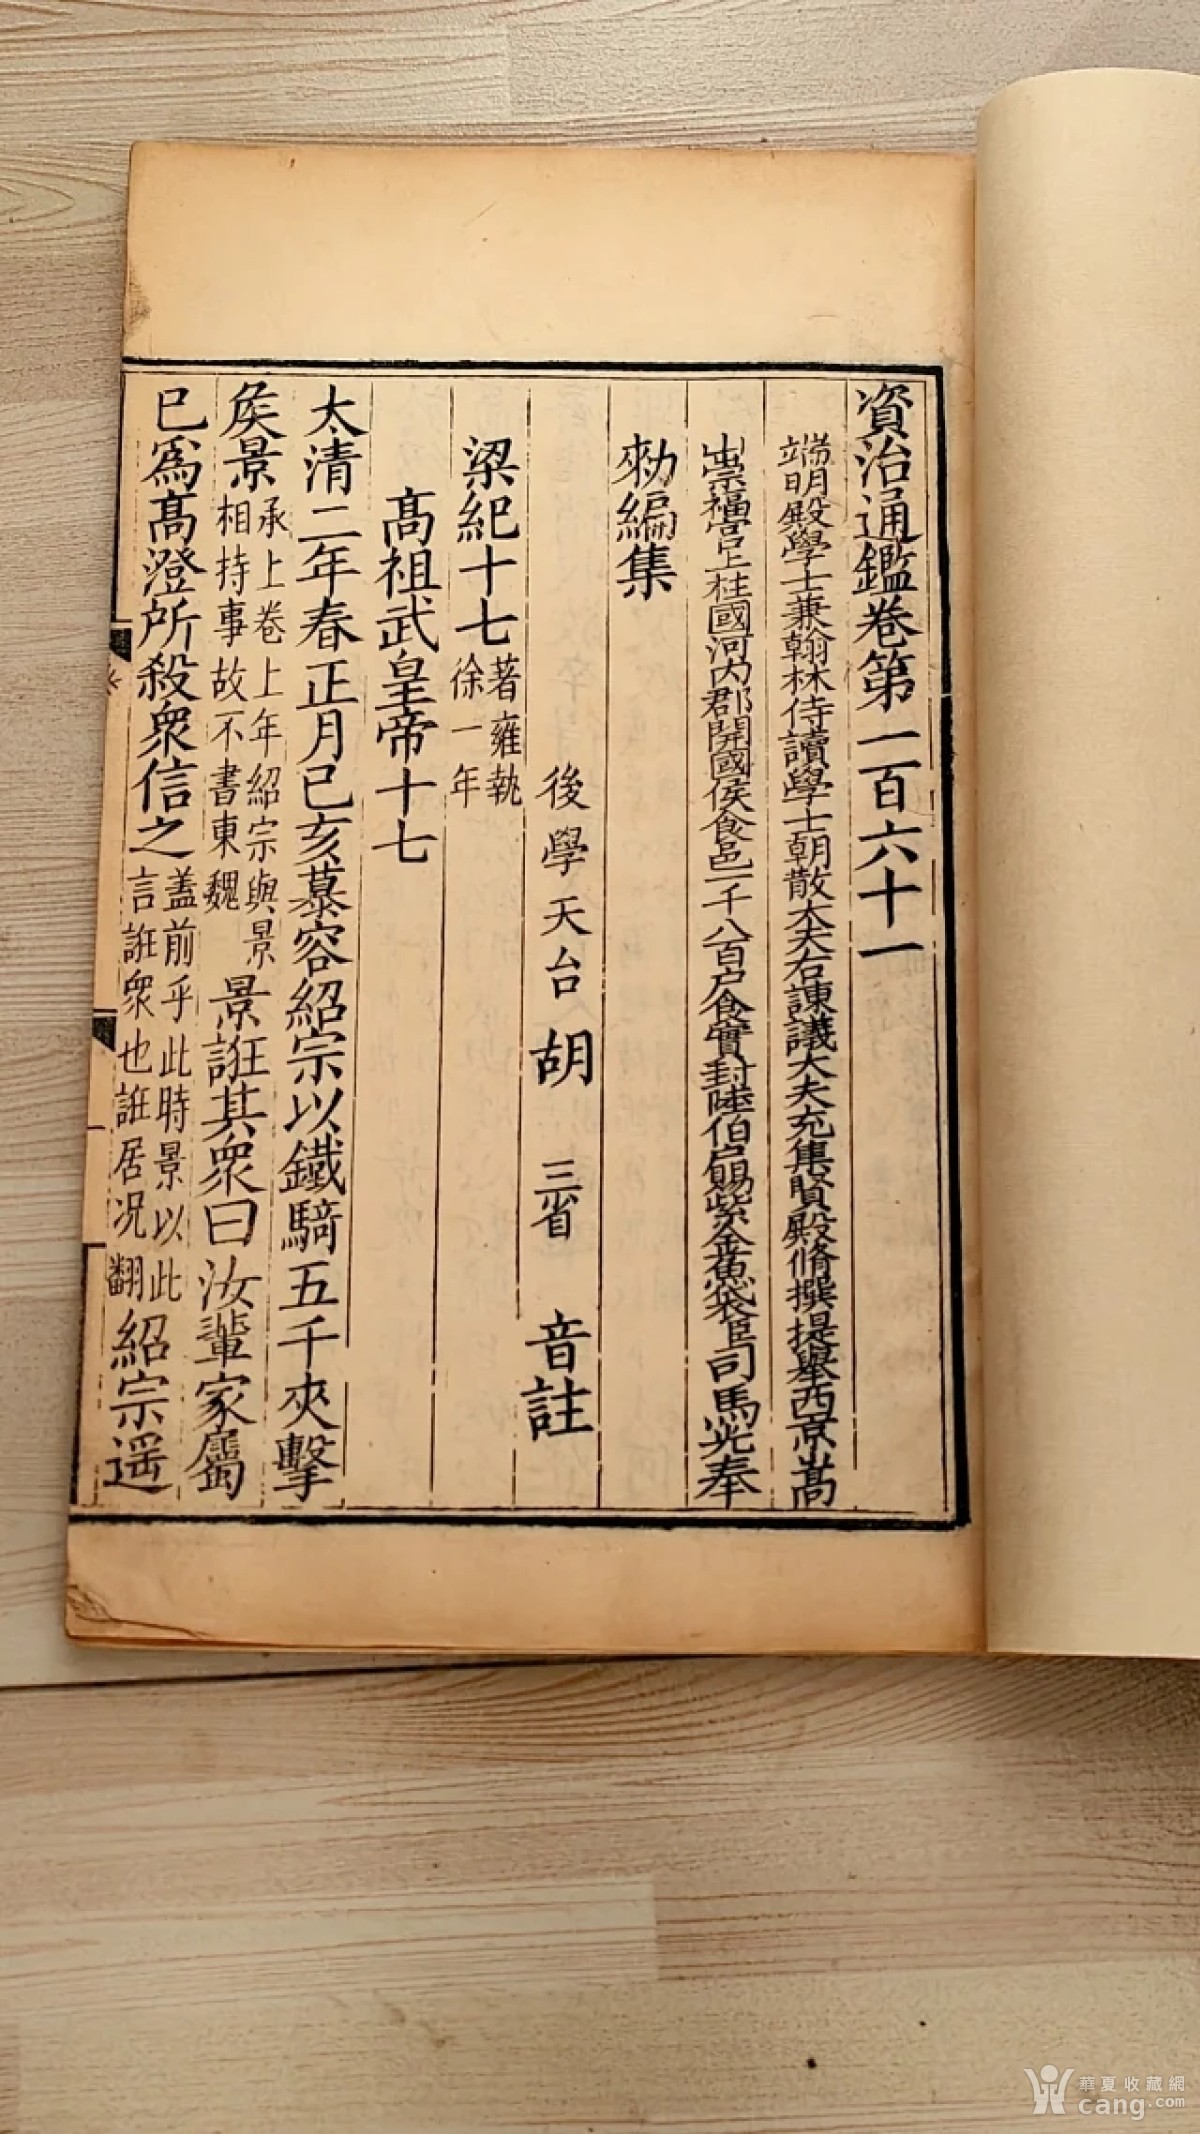 資治通鑑卷第一百六十一
端明殿學士兼翰林侍讀學士朝散太夫右諫議大夫充集賢殿脩撰提舉西京嵩
山崇福宮上柱國河內郡開國侯食邑一千八百戶食實封陸伯戶賜紫金魚袋臣司馬光奉
勑編集
後學天台胡三省音註
梁紀十七著雍執徐一年
高祖武皇帝十七
太清二年春正月己亥慕容紹宗以鐵騎五千夾擊
侯景承上卷上年紹宗與景相持事故不書東魏景誑其衆曰汝輩家屬
已爲高澄所殺衆信之蓋前乎此時景以此言誑衆也誑居况翻紹宗遥
華夏收藏網
cang.com